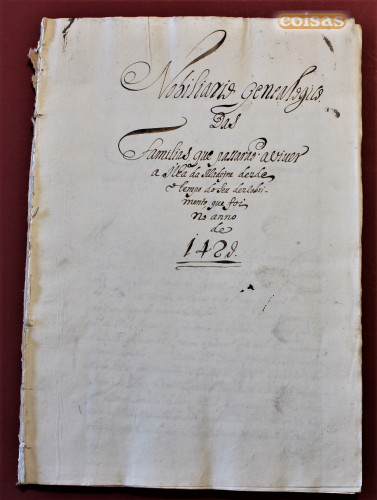 coisas
Nobiliario Genealogico
Das
Familias que passarão a viver
a Ilha da Madeira desde
o tempo do seu descobri-
mento, que foi
no anno
de
1420.